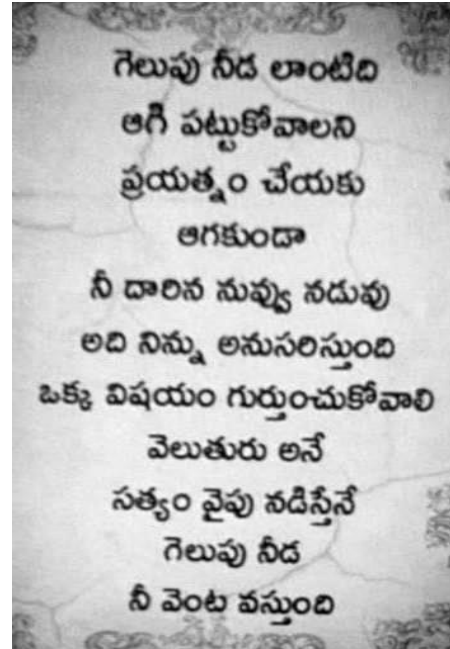 గెలుపు నీడ లాంటిది
ఆగి పట్టుకోవాలని
ప్రయత్నం చేయకు
ఆగకుండా
నీ దారిన నువ్వు నడువు
అది నిన్ను అనుసరిస్తుంది
ఒక్క విషయం గుర్తుంచుకోవాలి
వెలుతురు అనే
సత్యం వైపు నడిస్తేనే
గెలుపు నీడ
నీ వెంట వస్తుంది